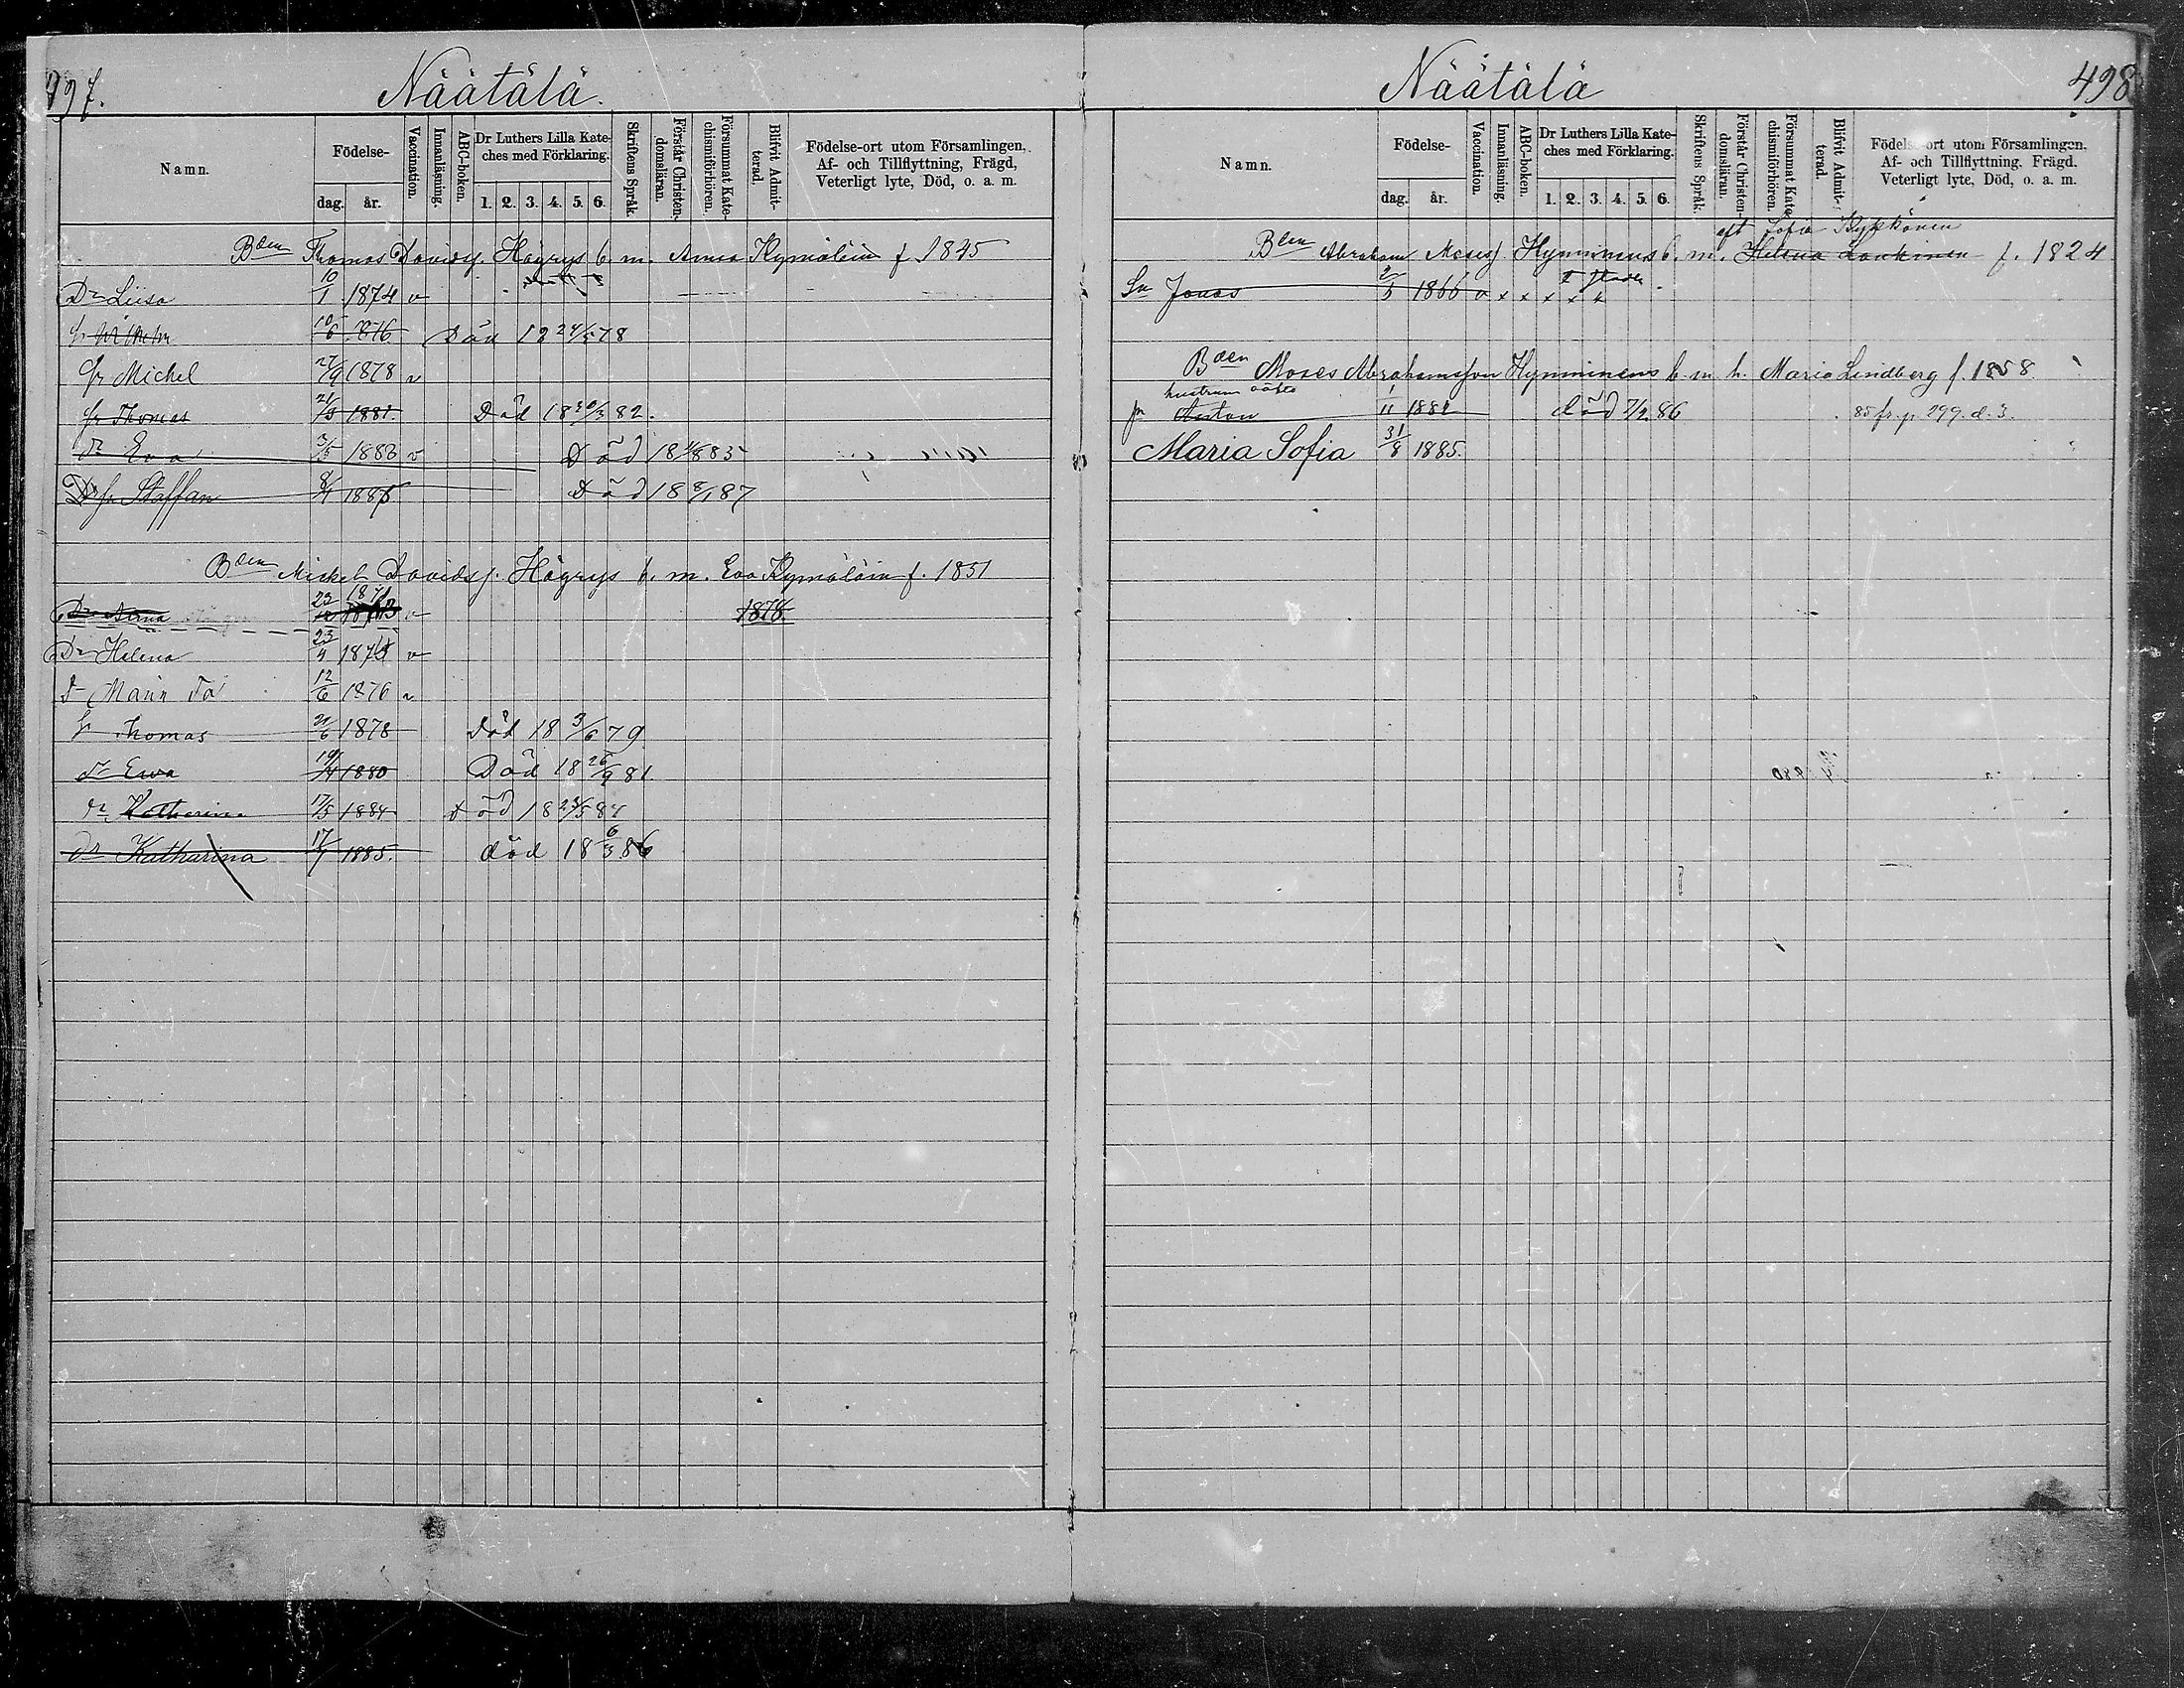 497.
Näätälä.
Namn.
Födelse-
dag. år.
Vaccination.
Innanläsning.
ABC-boken.
Dr Luthers Lilla Kate-
ches med Förklaring.
1. 2. 3. 4. 5. 6.
Skriftens Språk.
Förstår Christen-
domsläran.
Försummat Kate-
chismiförhören.
Blifvit Admit-
terad.
Födelse-ort utom Församlingen,
Af- och Tillflyttning, Frägd,
Veterligt lyte, Död, o. a. m.
Bden Thomas Davidsf. Högrys b. m. Anna Kymäläin f 1845
Dr Liisa 10/1 1874 v
fr Wilhelm 10/6 876 Död 18 24/5 78
fr Michel 27/9 1878 v
fr Thomas 21/5 1881. Död 18 30/3 82.
dr Eva 3/5 1883 v Död 18 4/8 85
fr Staffan 8/4 1886 Död 18 8/1 87
Bden Mickel Davidsf. Högrys b. m. Eva Kymäläin f. 1851
Dr Anna 23/12 1871 v 1878.
Dr Helena 23/4 1875 v
dr Maria 12/6 1876 v
fr Thomas 21/6 1878 död 18 3/6 79
dr Ewa 19/4 1880 Död 18 26/9 81
dr Katharina 17/5 1884 död 18 23/5 84
dr Katharina 17/7 1885. död 18 6/3 86
Näätälä
498
Namn.
Födelse-
dag. år.
Vaccination.
Innanläsning.
ABC-boken.
Dr Luthers Lilla Kate-
ches med Förklaring.
1. 2. 3. 4. 5. 6.
Skriftens Språk.
Förstår Christen-
domsläran.
Försummat Kate-
chismiförhören.
Blifvit Admit-
terad.
Födelse-ort utom Församlingen.
Af- och Tillflyttning. Frägd.
Veterligt lyte, Död, o. a. m.
Sofia Kykkönen
Bden Abraham Mosesf. Hymninens b. m. Helena Lankinen f. 1824
Sn Jonas 2/5 1866 v x x x x x
Bden Moses Abrahamsson Hymninens b. m. h. Maria Lindberg f. 1858
hustrun
fr Anton 1/11 1882 död 7/2 86 85 fr. p. 299. d. 3.
Maria Sofia 31/8 1885.